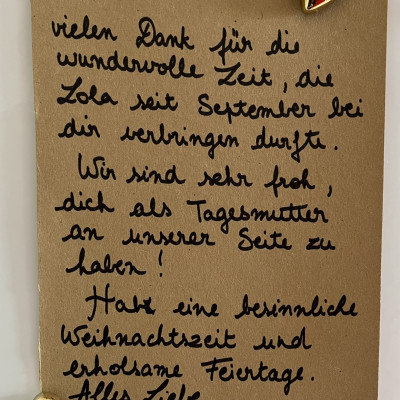 vielen Dank für die
wundervolle Zeit, die
Lola seit September bei
dir verbringen durfte.
Wir sind sehr froh,
dich als Tagesmutter
an unserer Seite zu
haben!
Habt eine besinnliche
Weihnachtszeit und
erholsame Feiertage.
Alles Liebe